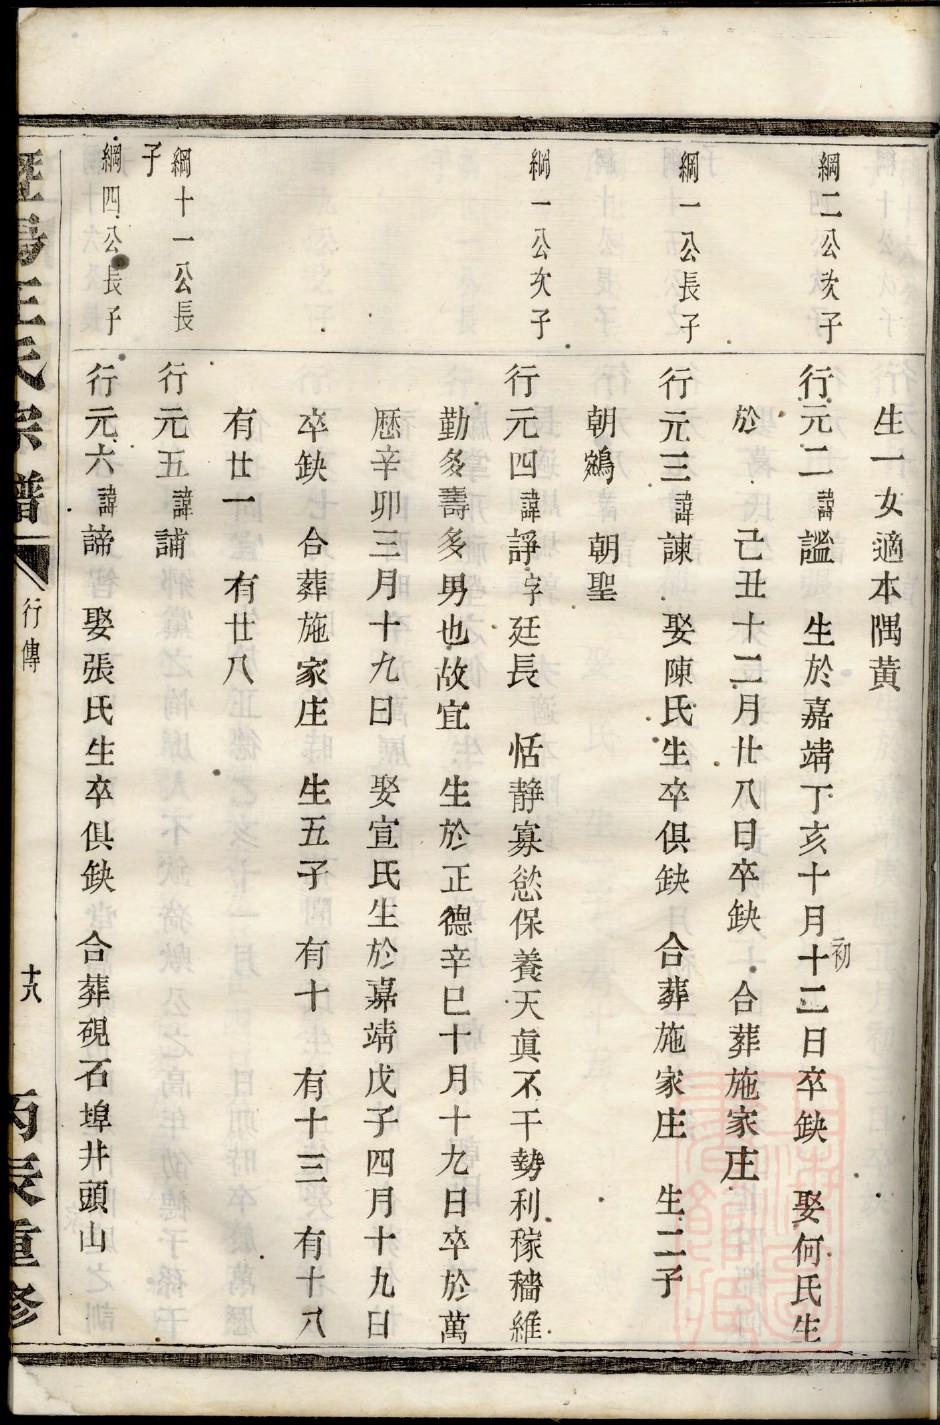 生一女適本隅黄
綱二公次子
行元二諱謐　生於嘉靖丁亥十月十二日卒缺　娶何氏生
初
於　己丑十二月廿八日卒缺　合葬施家庄
綱一公長子
行元三諱諫　娶陳氏生卒俱缺　合葬施家庄　生二子
朝鵷　朝聖
綱一公次子
行元四諱諍字廷長　恬靜寡慾保養天眞不干勢利稼穡維
勤多壽多男也故宜　生於正德辛巳十月十九日卒於萬
厯辛卯三月十九日　娶宣氏生於嘉靖戊子四月十九日
卒缺　合葬施家庄　生五子　有十　有十三　有十八
有廿一　有廿八
綱十一公長子
行元五諱誧
綱四公長子
行元六諱諦　娶張氏生卒俱缺　合葬硯石埠井頭山
暨陽王氏宗譜
行傳
十八
丙辰重修